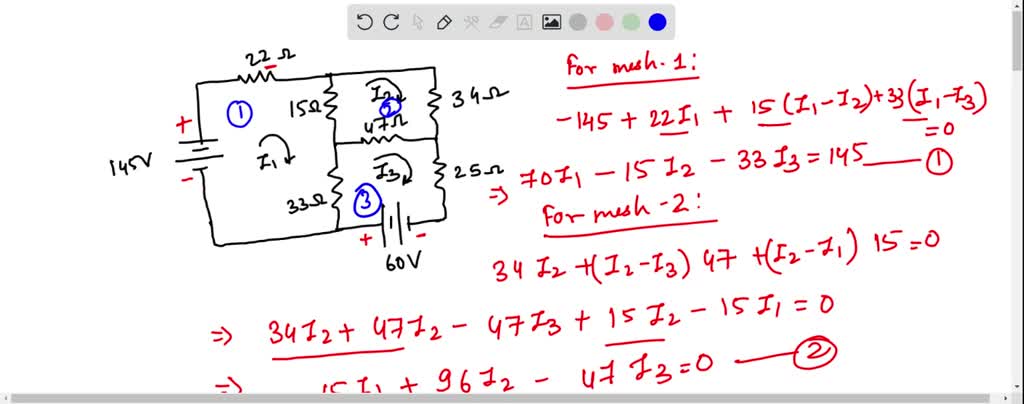 22Ω
1
15Ω
I₂
2
34Ω
47Ω
+
145V
-
I₁
I₃
25Ω
33Ω
3
+
-
60V
For mesh-1:
-145 + 22I₁ + 15(I₁-I₂)+33(I₁-I₃)
=0
⇒ 70I₁ - 15I₂ - 33I₃ = 145 — 1
For mesh-2:
34I₂+(I₂-I₃) 47 +(I₂-I₁) 15=0
⇒ 34I₂+ 47I₂ - 47I₃ + 15I₂ - 15I₁ = 0
⇒ 15I₁ + 96I₂ - 47I₃=0 — 2